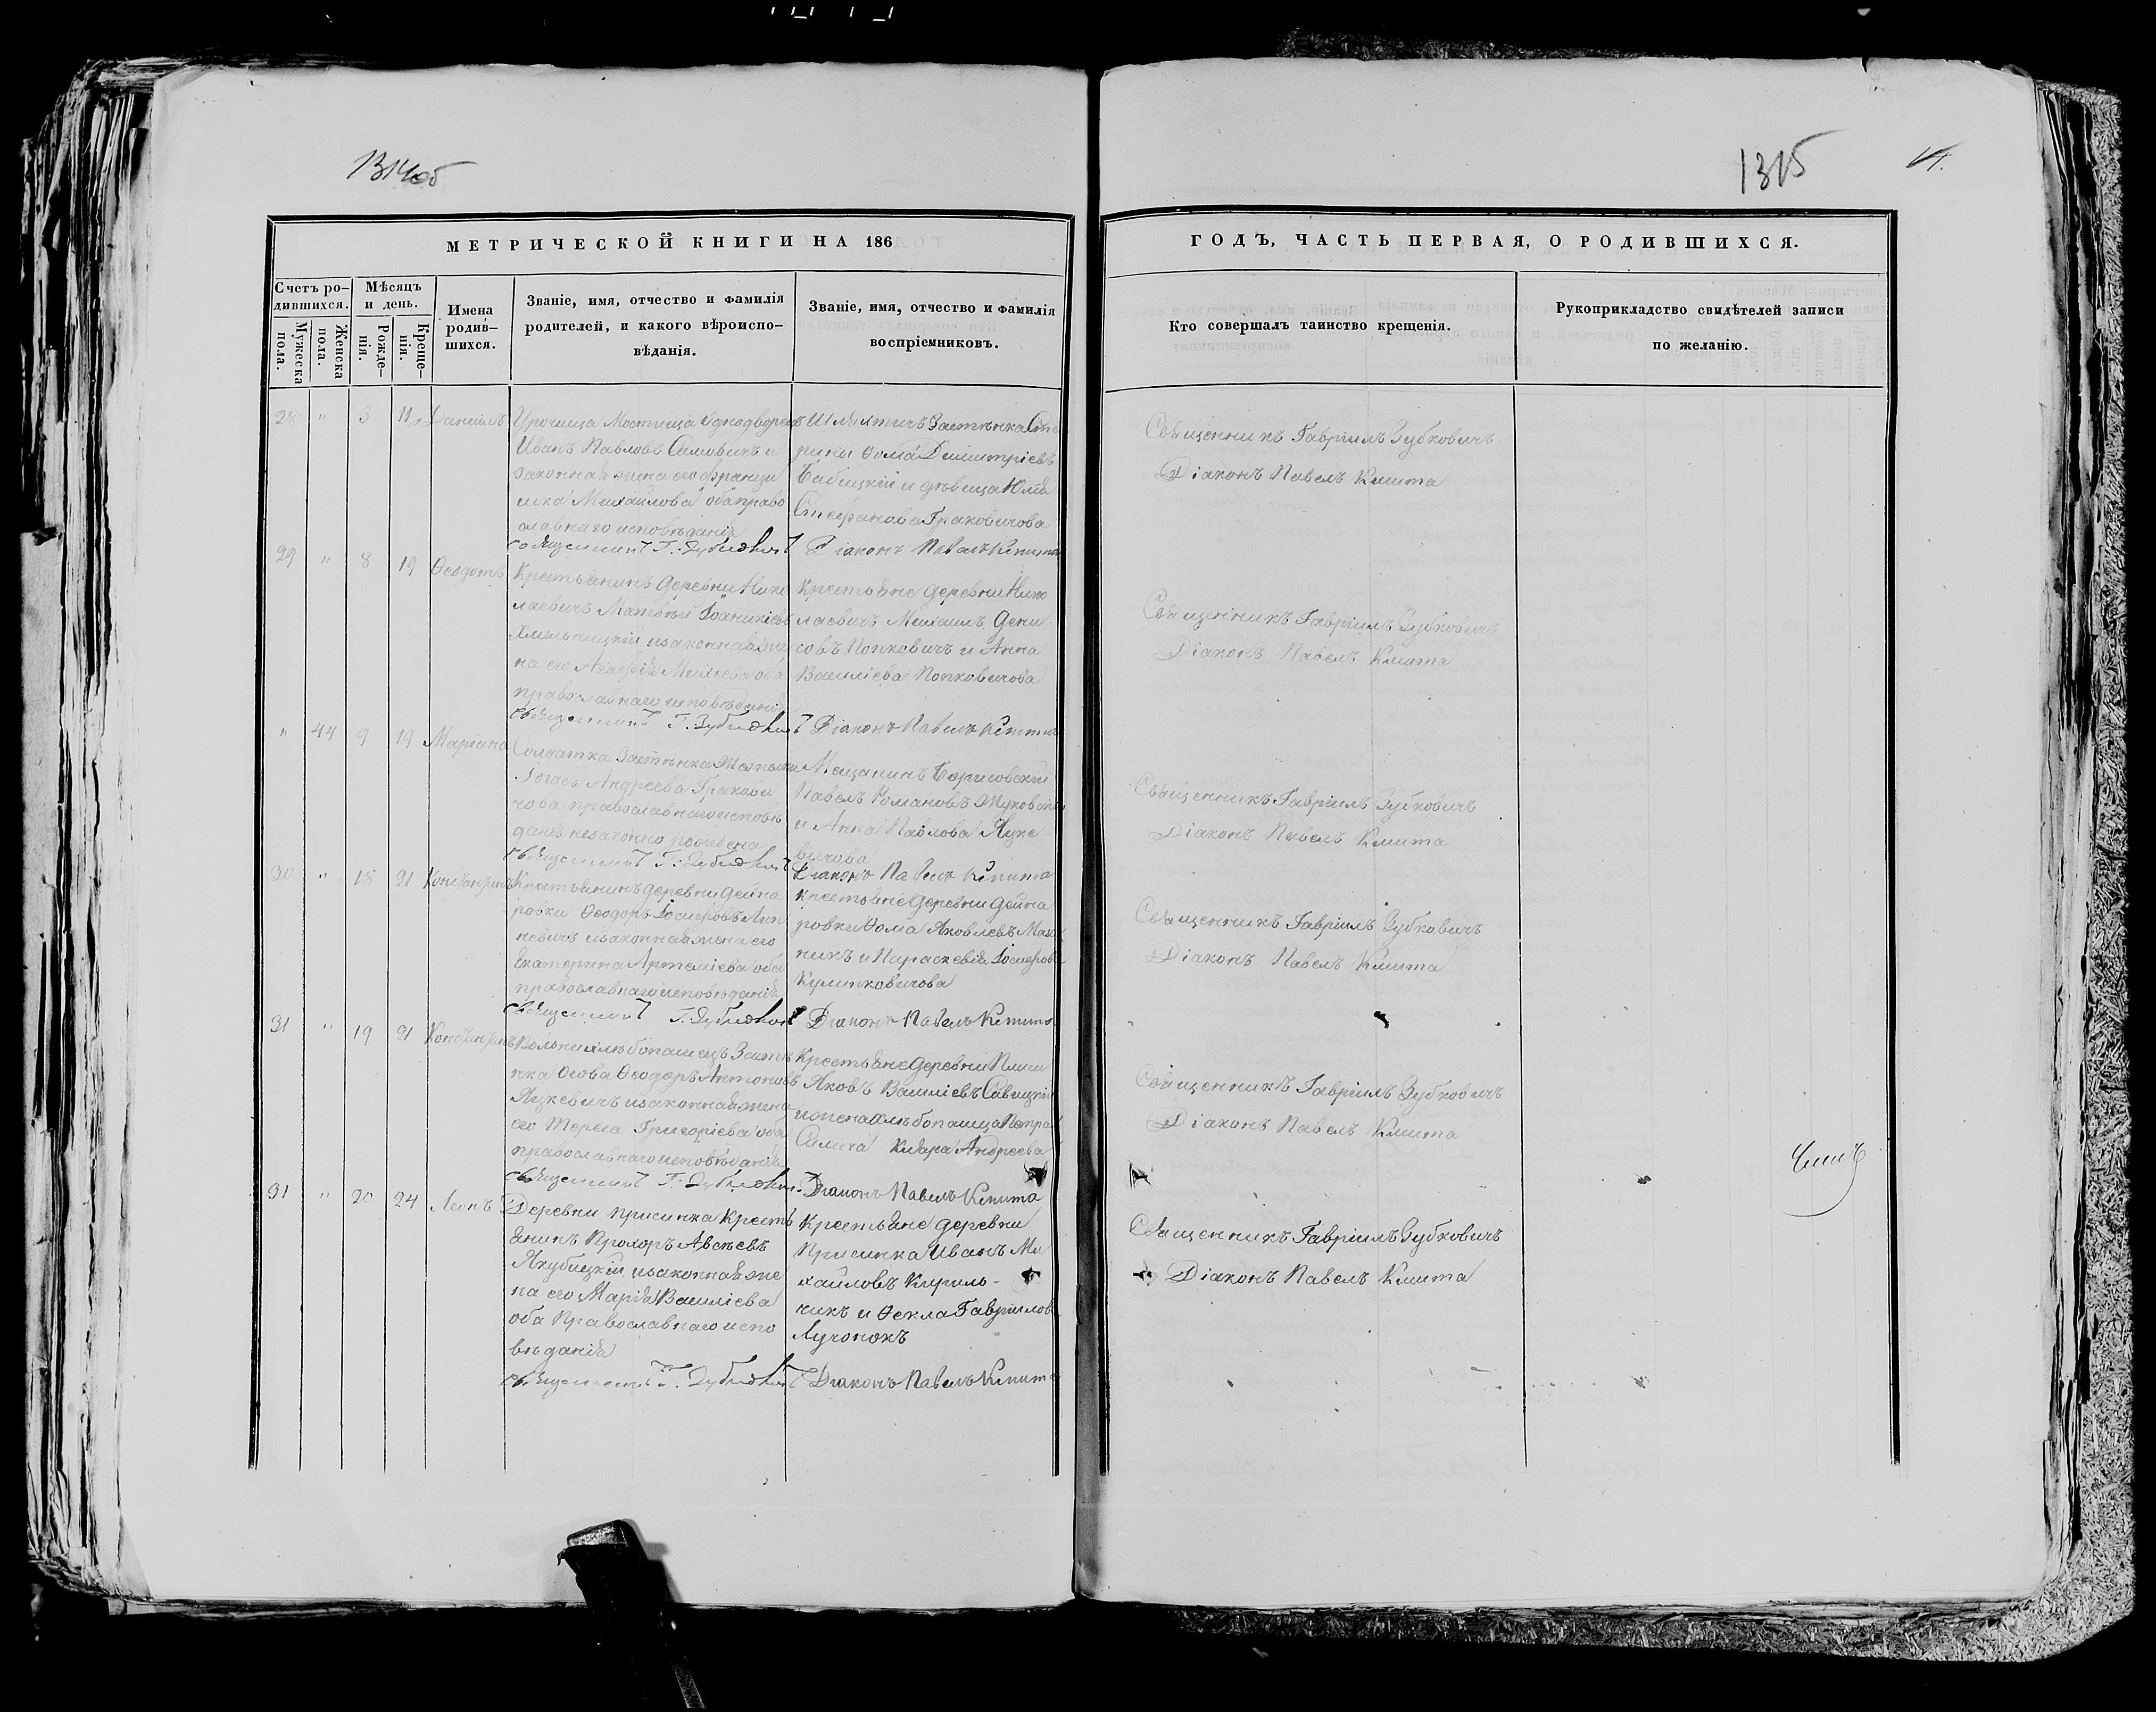 1314об
1315
МЕТРИЧЕСКОЙ КНИГИ НА 186
ГОДЪ, ЧАСТЬ ПЕРВАЯ, О РОДИВШИХСЯ.
Счетъ ро-
дившихся.
Мужеска
пола.
Женска
пола.
Мѣсяцъ
и день.
Рожде-
нія.
Креще-
нія.
Имена
родив-
шихся.
Званіе, имя, отчество и фамилія
родителей, и какого вѣроиспо-
вѣданія.
Званіе, имя, отчество и фамилія
воспріемниковъ.
Кто совершалъ таинство крещенія.
Рукоприкладство свидѣтелей записи
по желанію.
28 " 3 11 Даніилъ
Урочища Мостища Однодворецъ
Иванъ Павловъ и
законная жена его Франци
шка Михайлова оба право
славнаго исповѣданія
Священникъ Г. Зубковичъ
Шляхтичъ Застѣнка
Ѳома Димитріевъ
Бабицкій и дѣвица Юлія
Стефанова Граковичова
Діаконъ Павелъ Кмита
Священникъ Гавріилъ Зубковичъ
Діаконъ Павелъ Кмита
29 " 8 19 Ѳеодотъ
Крестьянинъ деревни Нико
лаевичъ Матвѣй Іоаникіевъ
Хмельницкій и законная же
на его Михеева оба
православнаго исповѣданія
Священникъ Г. Зубковичъ
Крестьяне деревни Нико
лаевичъ Михаилъ Дени
совъ Попковичъ и Анна
Василіева Попковичова
Діаконъ Павелъ Кмита
Священникъ Гавріилъ Зубковичъ
Діаконъ Павелъ Кмита
" 44 9 19 Маріанна
Солдатка Застѣнка
Андреева Гракови
чова православнаго исповѣ
данія незаконно рождена
Священникъ Г. Зубковичъ
Мещанинъ Борисовскій
Павелъ Романовъ Жуковскій
и Анна Павлова Яцке
вичова
Діаконъ Павелъ Кмита
Священникъ Гавріилъ Зубковичъ
Діаконъ Павелъ Кмита
30 " 18 21 Константинъ
Крестьянинъ деревни Дейна
ровки Ѳеодоръ Іосифовъ
невичъ и законная жена его
Екатерина Артеміева оба
православнаго исповѣданія
Священникъ Г. Зубковичъ
Крестьяне деревни Дейна
ровки Ѳома Яковлевъ
никъ и Параскевія Іосифова
Кулинковичова
Діаконъ Павелъ Кмита
Священникъ Гавріилъ Зубковичъ
Діаконъ Павелъ Кмита
31 " 19 21 Константинъ
Вольный хлѣбопашецъ Застѣ
нка Осова Ѳеодоръ Антоновъ
Яцкевичъ и законная жена
его Тереса Григоріева оба
православнаго исповѣданія
Священникъ Г. Зубковичъ
Крестьяне деревни
Яковъ Василіевъ Савицкій
и жена хлѣбопашца Петра
Клара Андреева
Діаконъ Павелъ Кмита
Священникъ Гавріилъ Зубковичъ
Діаконъ Павелъ Кмита
31 " 20 24 Леонъ
Деревни Присинка Кресть
янинъ Прохоръ Авсѣевъ
Якубицкій и законная же
на его Марія Василіева
оба Православнаго испо
вѣданія
Священникъ Г. Зубковичъ
Крестьяне деревни
Присинка Иванъ Ми
хайловъ Кириль-
чикъ и Ѳекла Гавріилова
Лучонокъ
Діаконъ Павелъ Кмита
Священникъ Гавріилъ Зубковичъ
Діаконъ Павелъ Кмита